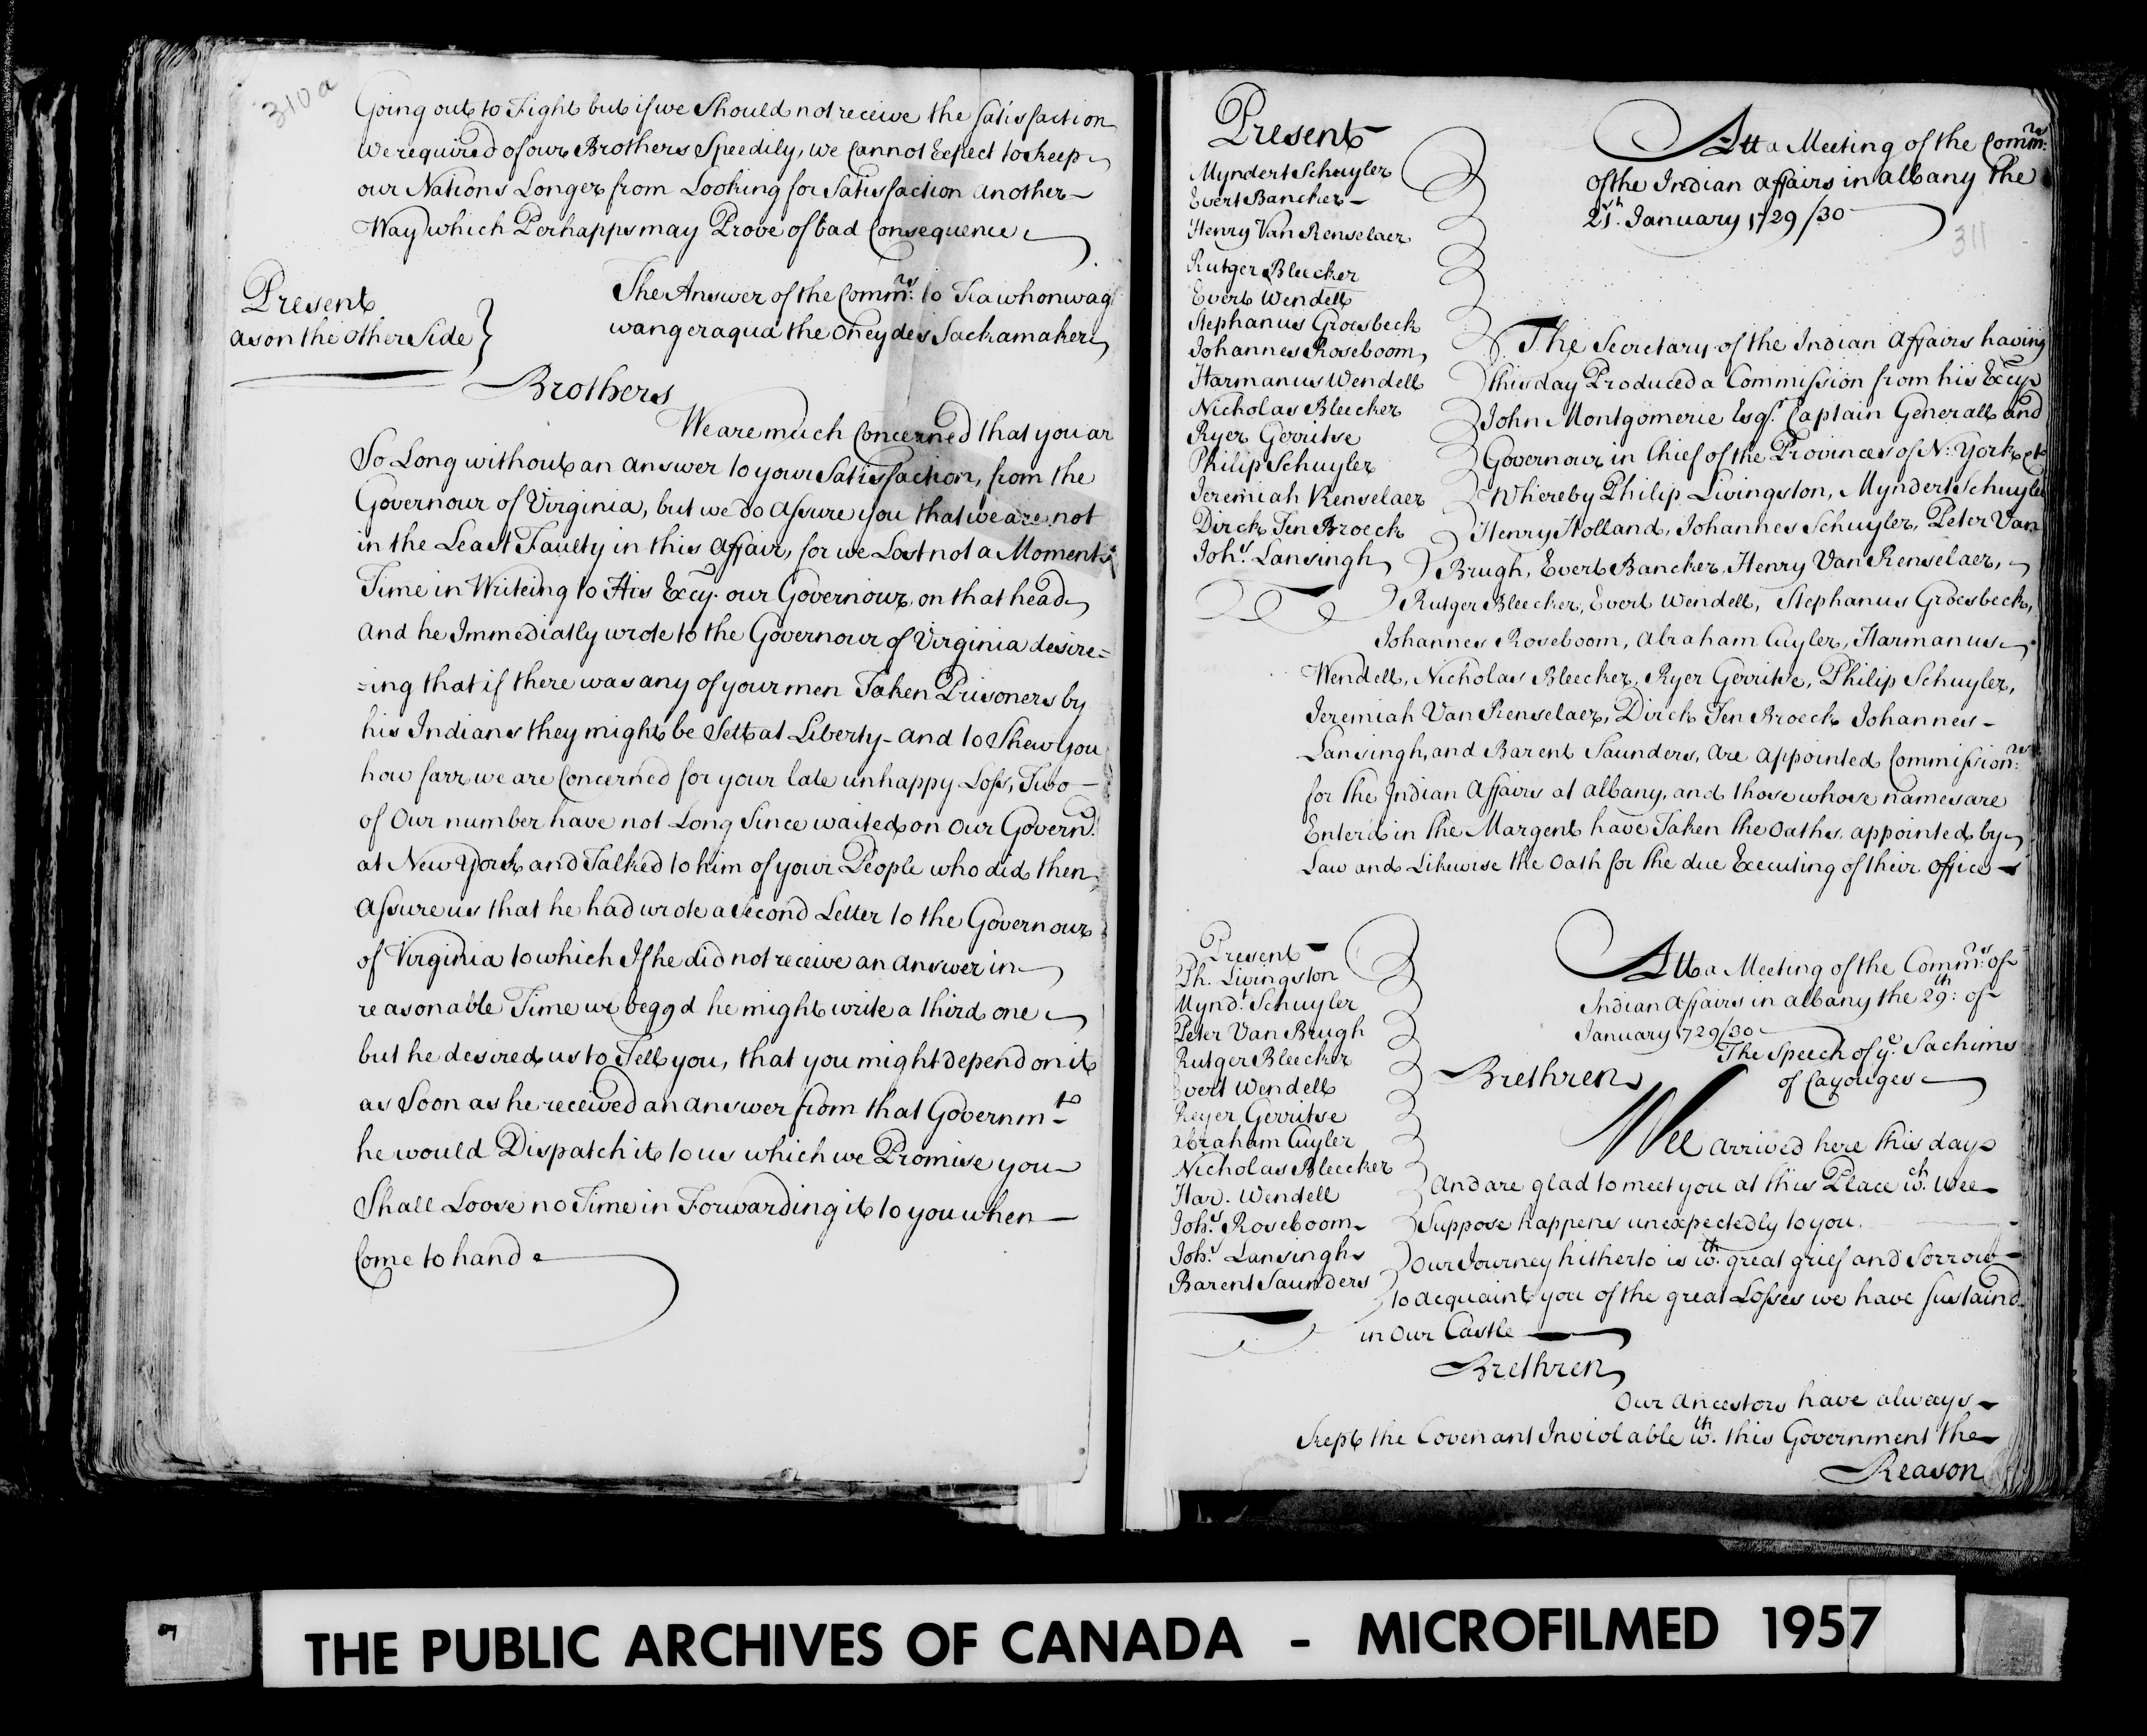 310a
Going out to Fight but if we Should not receive the Satisfaction
We required of our Brothers Speedily, we Cannot Expect to keep
our Nations Longer from Looking for Satisfaction another
Way which Perhapps may Prove of bad Consequence
Present
as on the other Side
The Answer of the Commrs: to
wangeraqua the Oneydes Sackamakers
Brothers
We are much Concerned that you ar
So Long without an answer to your Satisfaction, from the
Governour of Virginia, but we do assure you that we are not
in the Least Faulty in this affair, for we Lost not a Moments
Time in Writeing to His Excy. our Governour on that head
and he Immediatly wrote to the Governour of Virginia desire=
=ing that if there was any of your men Taken Prisoners by
his Indians they might be Sett at Liberty - and to Shew you
how farr we are Concerned for your late unhappy Loss, Two
of Our number have not Long Since waited on Our Governr.
at New York and Talked to him of your People who did then
assure us that he had wrote a second Letter to the Governour
of Virginia to which If he did not receive an answer in
reasonable Time we begg'd he might write a third one
but he desired us to Tell you, that you might depend on it
as Soon as he received an answer from that Governmt.
he would Dispatch it to us which we Promise you
Shall Loose no Time in Forwarding it to you when
Come to hand
Present
Myndert Schuyler
Evert Bancker
Henry Van Renselaer
Rutger Bleecker
Evert Wendell
Stephanus Groesbeck
Johannes Roseboom,
Harmanus Wendell
Nicholas Bleecker
Ryer Gerritse
Philip Schuyler
Jeremiah Renselaer
Dirck Ten Broeck
Johs. Lansingh
Att a Meeting of the Commrs.
of the Indian affairs in albany the
21st. January 1729/30
311
The Secretary of the Indian Affairs having
this day Produced a Commission from his Excy
John Montgomerie Esqr. Captain Generall and
Governour in Chief of the Provinces of N: York etc
Whereby Philip Livingston, Myndert Schuyler
Henry Holland, Johannes Schuyler, Peter Van
Brugh, Evert Bancker, Henry Van Renselaer,
Rutger Bleecker, Evert Wendell, Stephanus Groesbeck,
Johannes Roseboom, Abraham Cuyler, Harmanus
Wendell, Nicholas Bleecker, Ryer Gerritse, Philip Schuyler,
Jeremiah Van Renselaer, Dirck Ten Broeck Johannes
Lansingh, and Barent Saunders, are appointed Commissionrs:
for the Indian Affairs at albany, and those whose names are
Enter'd in the Margent have Taken the Oaths appointed by
Law and Likewise the Oath for the due Executing of their office
Present
Ph. Livingston
Myndt. Schuyler
Peter Van Brugh
Rutger Bleecker
Evert Wendell
Reyer Gerritse
Abraham Cuyler
Nicholas Bleecker
Har. Wendell
Johs. Roseboom
Johs. Lansingh
Barent Saunders
Att a Meeting of the Commrs: of
Indian affairs in albany the 29th: of
January 1729/30
The Speech of ye. Sachims
of Cayouges
Brethren
Wee arrived here this day
and are glad to meet you at this Place wch. Wee
Suppose happens unexpectedly to you.
Our Journey hitherto is wth. great grief and Sorrow
to acquaint you of the great Losses we have Sustaind
in Our Castle
Brethren
Our Ancestors have always
kept the Covenant Inviolable wth. this Government the
Reason
THE PUBLIC ARCHIVES OF CANADA - MICROFILMED 1957